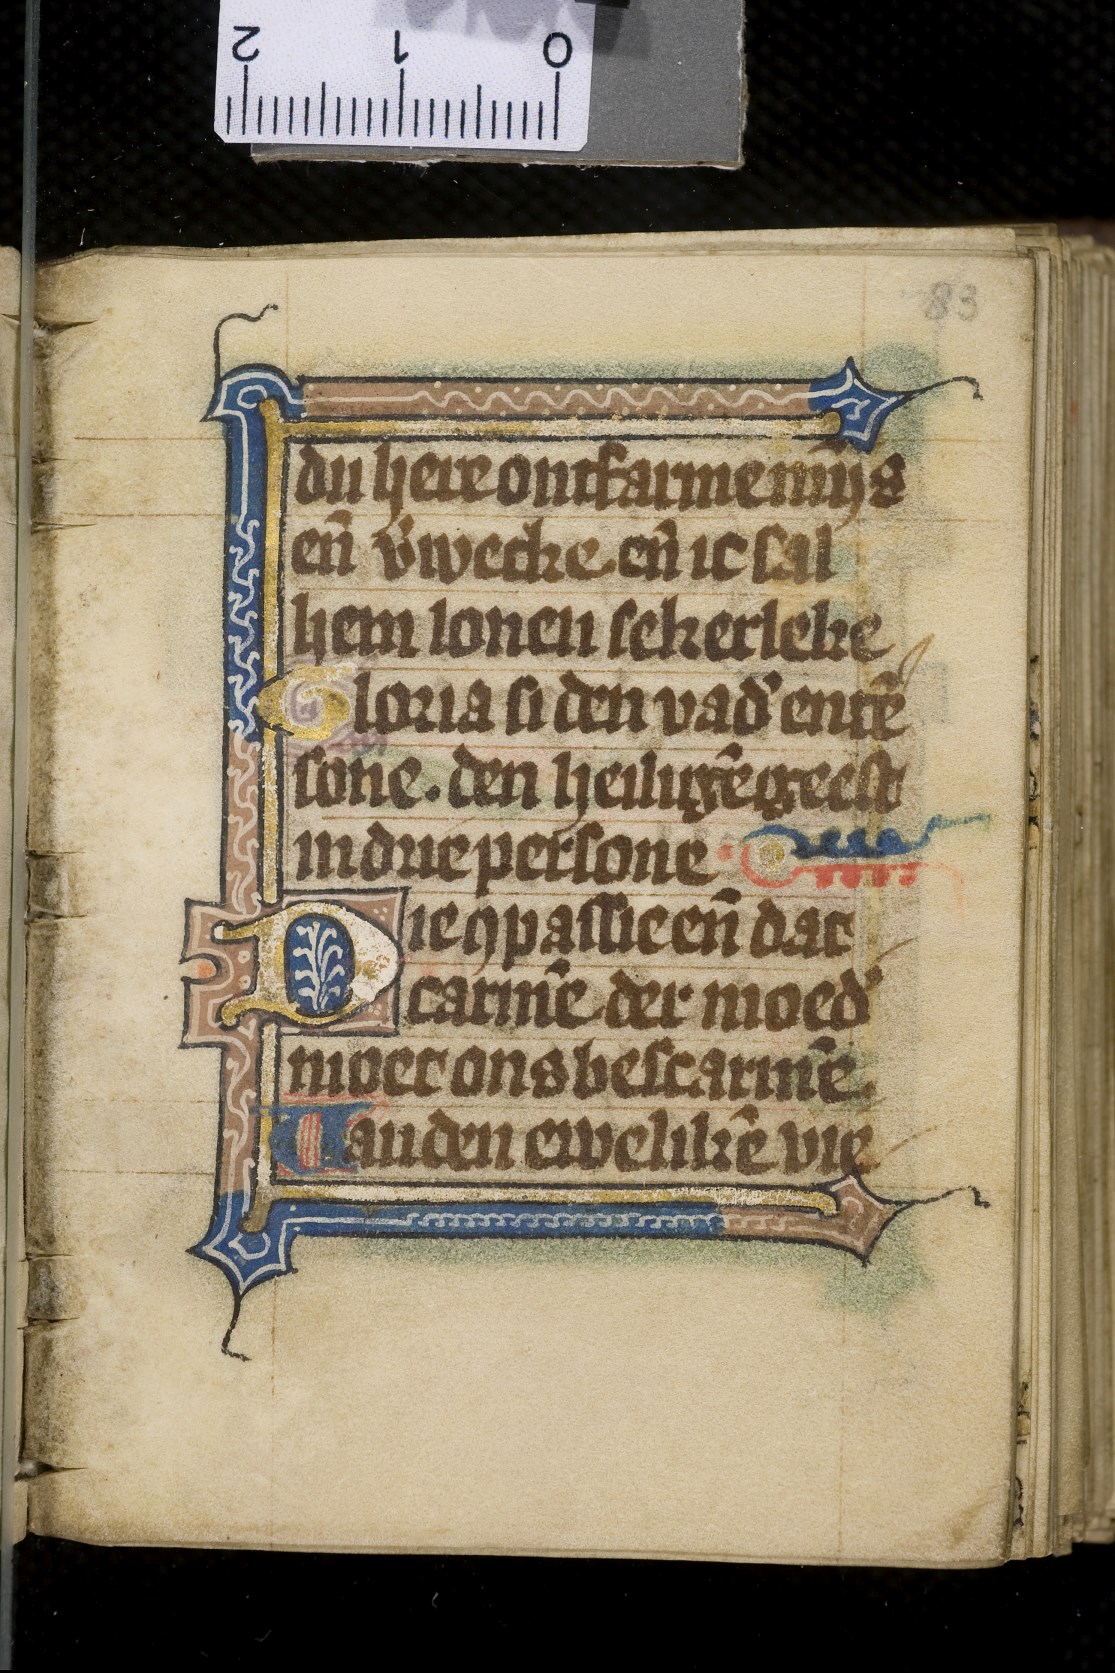 2 1 0
83
du here ontfarme mijns
en̄ v̓wecke. en̄ ic sal
hem lonen sekerleke
Gloria si den vad̓ entē
sone. den heiligē geest
in drie persone
Die ꝯpassie en̄ dat
carmē der moed̓
moet ons bescarmē.
Uan den ewelikē vie